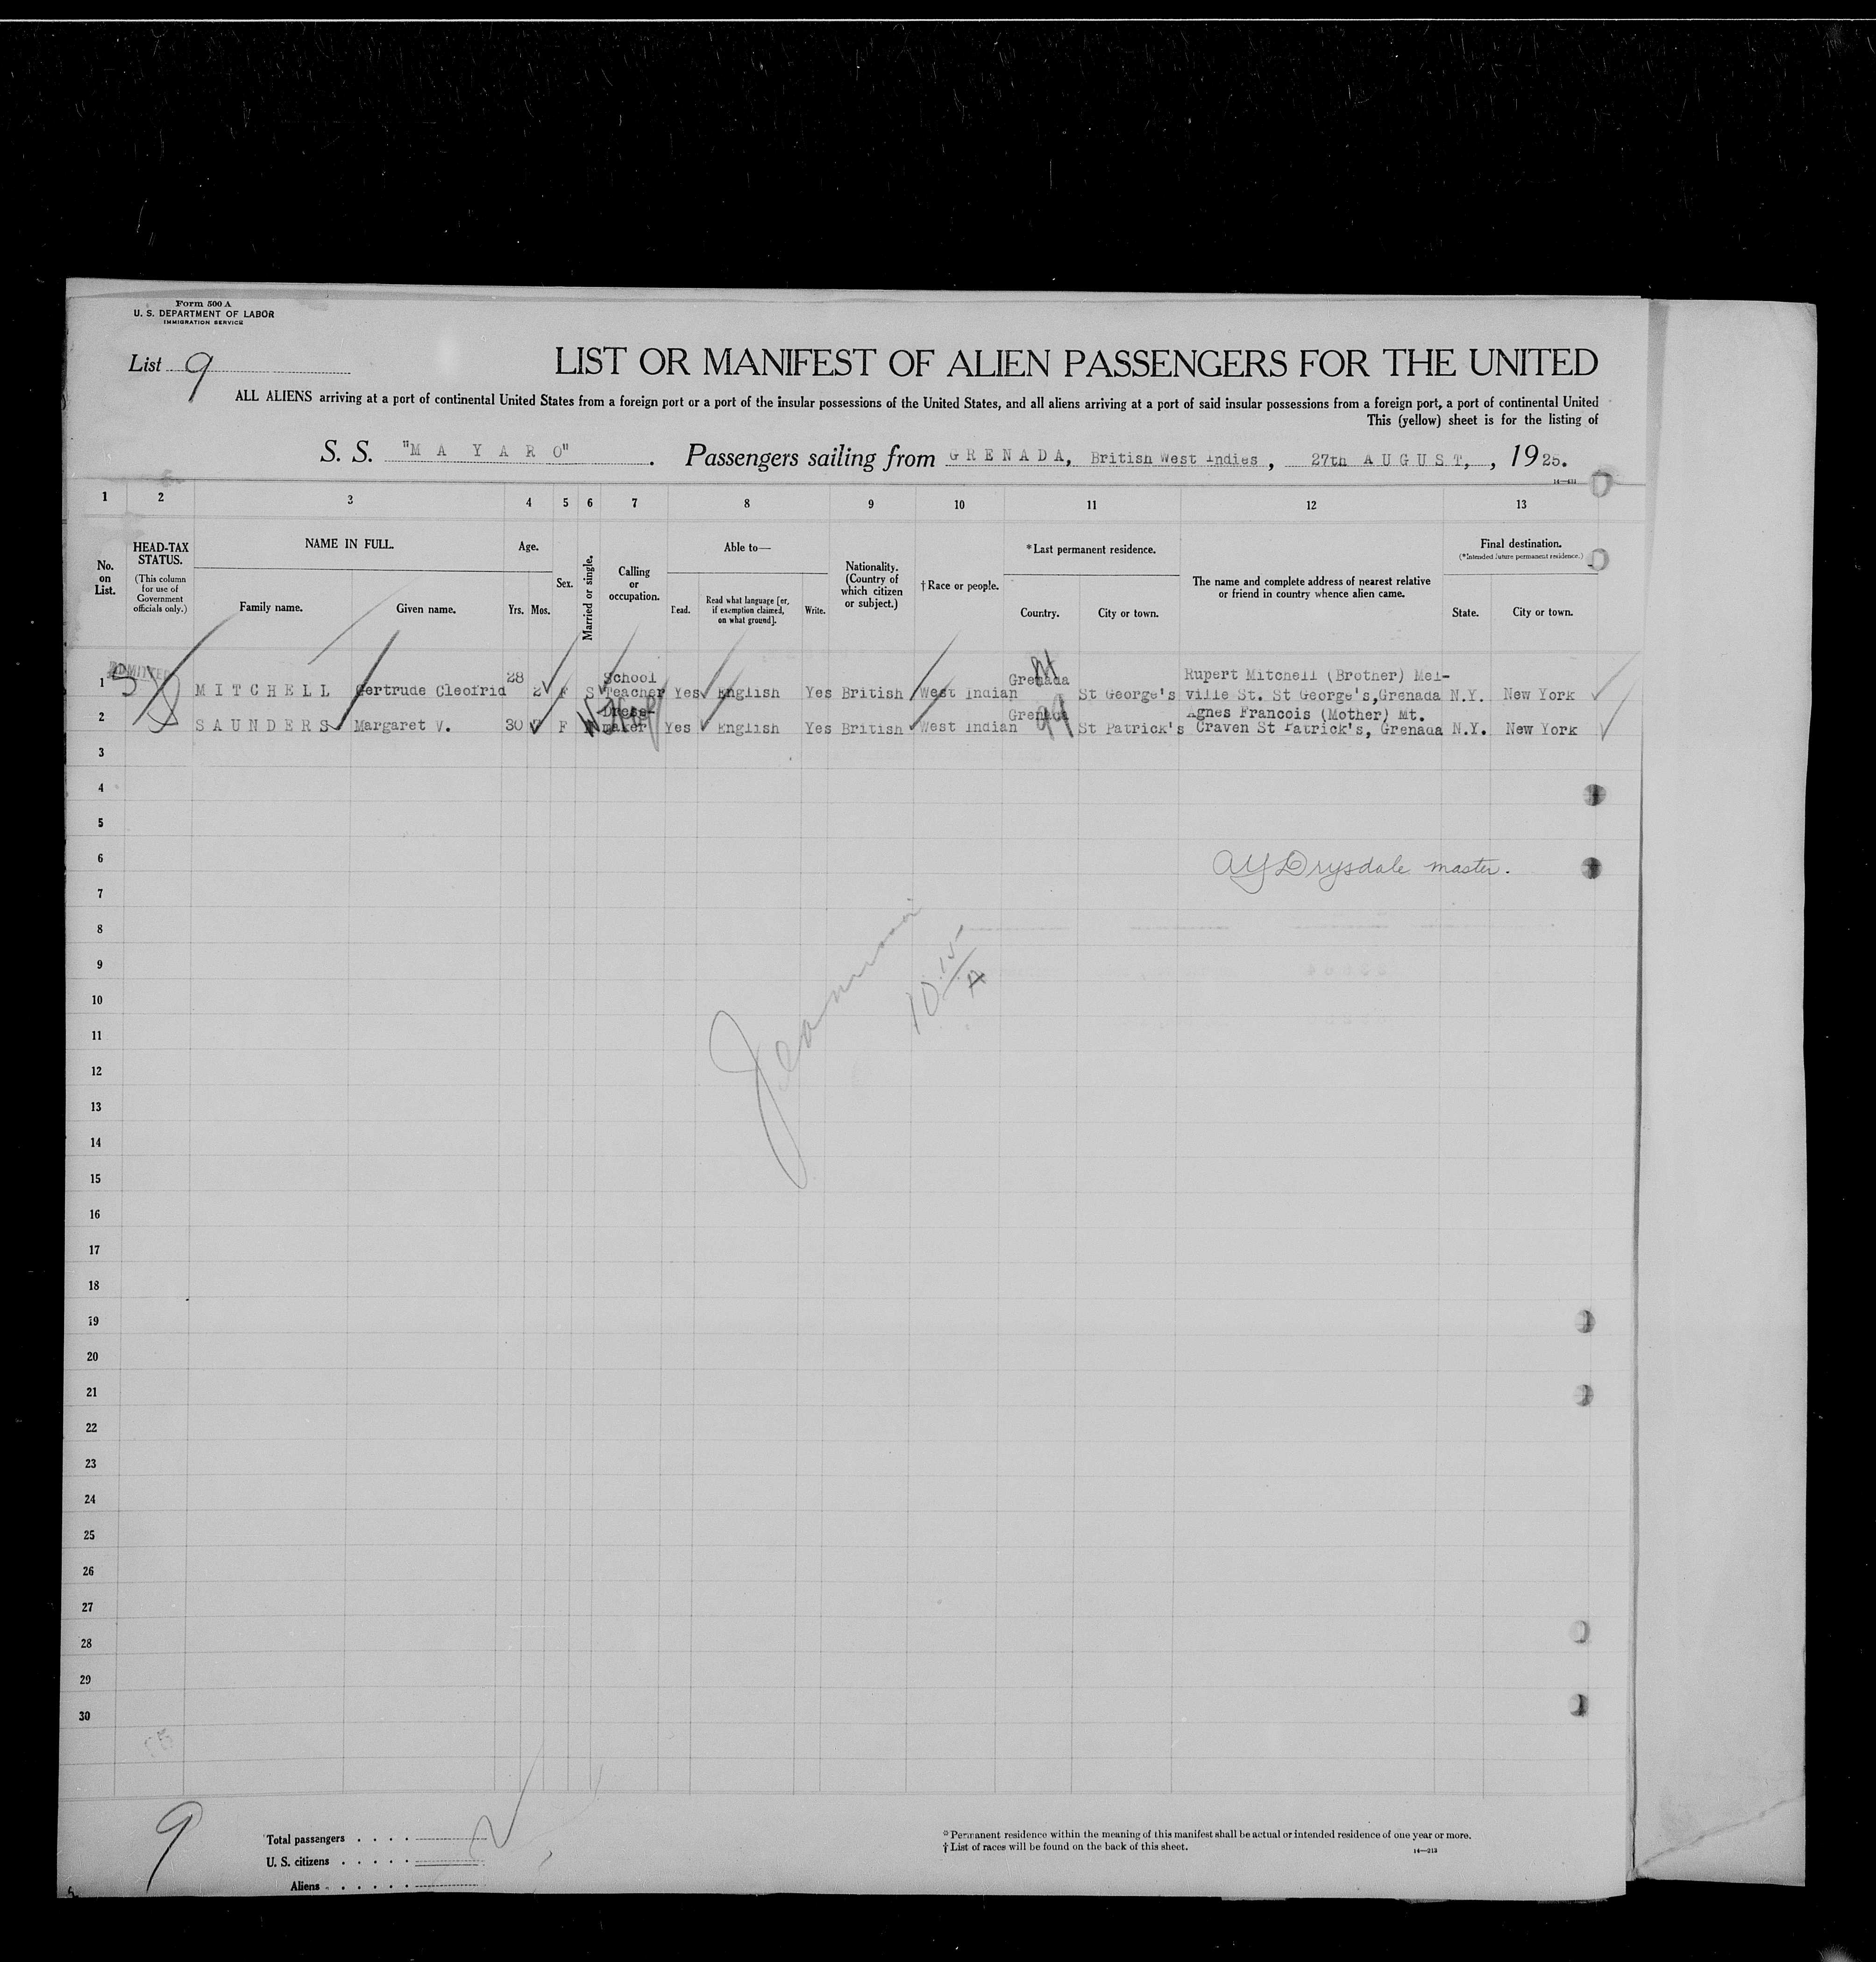 Form 500 A
U. S. DEPARTMENT OF LABOR
IMMIGRATION SERVICE
List 9
LIST OR MANIFEST OF ALIEN PASSENGERS FOR THE UNITED
ALL ALIENS arriving at a port of continental United States from a foreign port or a port of the insular possessions of the United States, and all aliens arriving at a port of said insular possessions from a foreign port, a port of continental United
This (yellow) sheet is for the listing of
S. S. "M A Y A R O". Passengers sailing from G R E N A D A, British West Indies, 27th A U G U S T, , 1925.
1 2 3 4 5 6 7 8 9 10 11 12 13
No. on List.
HEAD-TAX STATUS.
(This column for use of Government officials only.)
NAME IN FULL.
Family name. Given name.
Age.
Yrs. Mos.
Sex.
Married or single.
Calling or occupation.
Able to—
Read. Read what language [or, if exemption claimed, on what ground]. Write.
Nationality. (Country of which citizen or subject.)
† Race or people.
*Last permanent residence.
Country. City or town.
The name and complete address of nearest relative or friend in country whence alien came.
Final destination.
(*Intended future permanent residence.)
State. City or town.
ADMITTED
1 M I T C H E L L Gertrude Cleofrid 28 2 F S School Teacher Yes English Yes British West Indian Grenada St George's Rupert Mitchell (Brother) Mel-ville St. St George's,Grenada N.Y. New York
2 S A U N D E R S Margaret V. 30 F Dress-maker Yes English Yes British West Indian Grenada St Patrick's Agnes Francois (Mother) Mt. Craven St Patrick's, Grenada N.Y. New York
3
4
5
6
AY Drysdale master.
7
8
9
10
10 15/A
11
12
13
14
15
16
17
18
19
20
21
22
23
24
25
26
27
28
29
30
9
Total passengers . . . . 2
U. S. citizens . . . . .
Aliens . . . . . .
*Permanent residence within the meaning of this manifest shall be actual or intended residence of one year or more.
† List of races will be found on the back of this sheet.
14—213